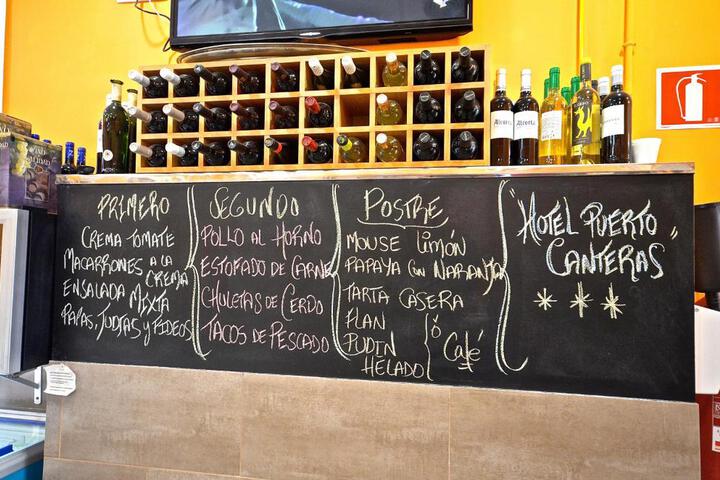 PRIMERO
CREMA TOMATE
MACARRONES A LA
CREMA
ENSALADA MIXTA
PAPAS, JUDIAS Y FIDEOS
SEGUNDO
POLLO AL HORNO
ESTOFADO DE CARNE
CHULETAS DE CERDO
TACOS DE PESCADO
POSTRE
MOUSE LIMÓN
PAPAYA CON NARANJA
TARTA CASERA
FLAN
PUDIN
HELADO
Ó
Café
"HOTEL PUERTO
CANTERAS"